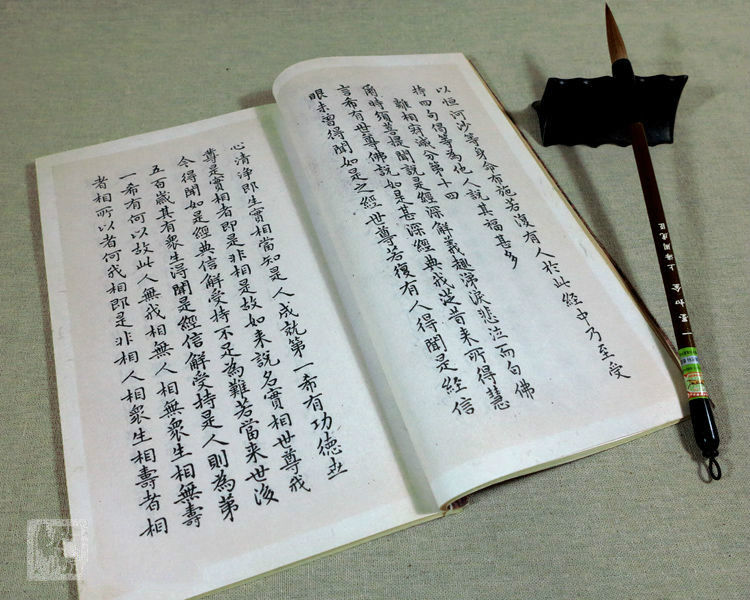 以恒河沙等身命布施若復有人於此經中乃至受
持四句偈等為他人說其福甚多
離相寂滅分第十四
爾時須菩提聞說是經深解義趣涕淚悲泣而白佛
言希有世尊佛說如是甚深經典我從昔來所得慧
眼未曾得聞如是之經世尊若復有人得聞是經信
心清淨即生實相當知是人成就第一希有功德世
尊是實相者即是非相是故如来說名實相世尊我
今得聞如是經典信解受持不足為難若當来世後
五百歲其有眾生得聞是經信解受持是人則為第
一希有何以故此人無我相無人相無眾生相無壽
者相所以者何我相即是非相人相眾生相壽者相
上海周虎臣